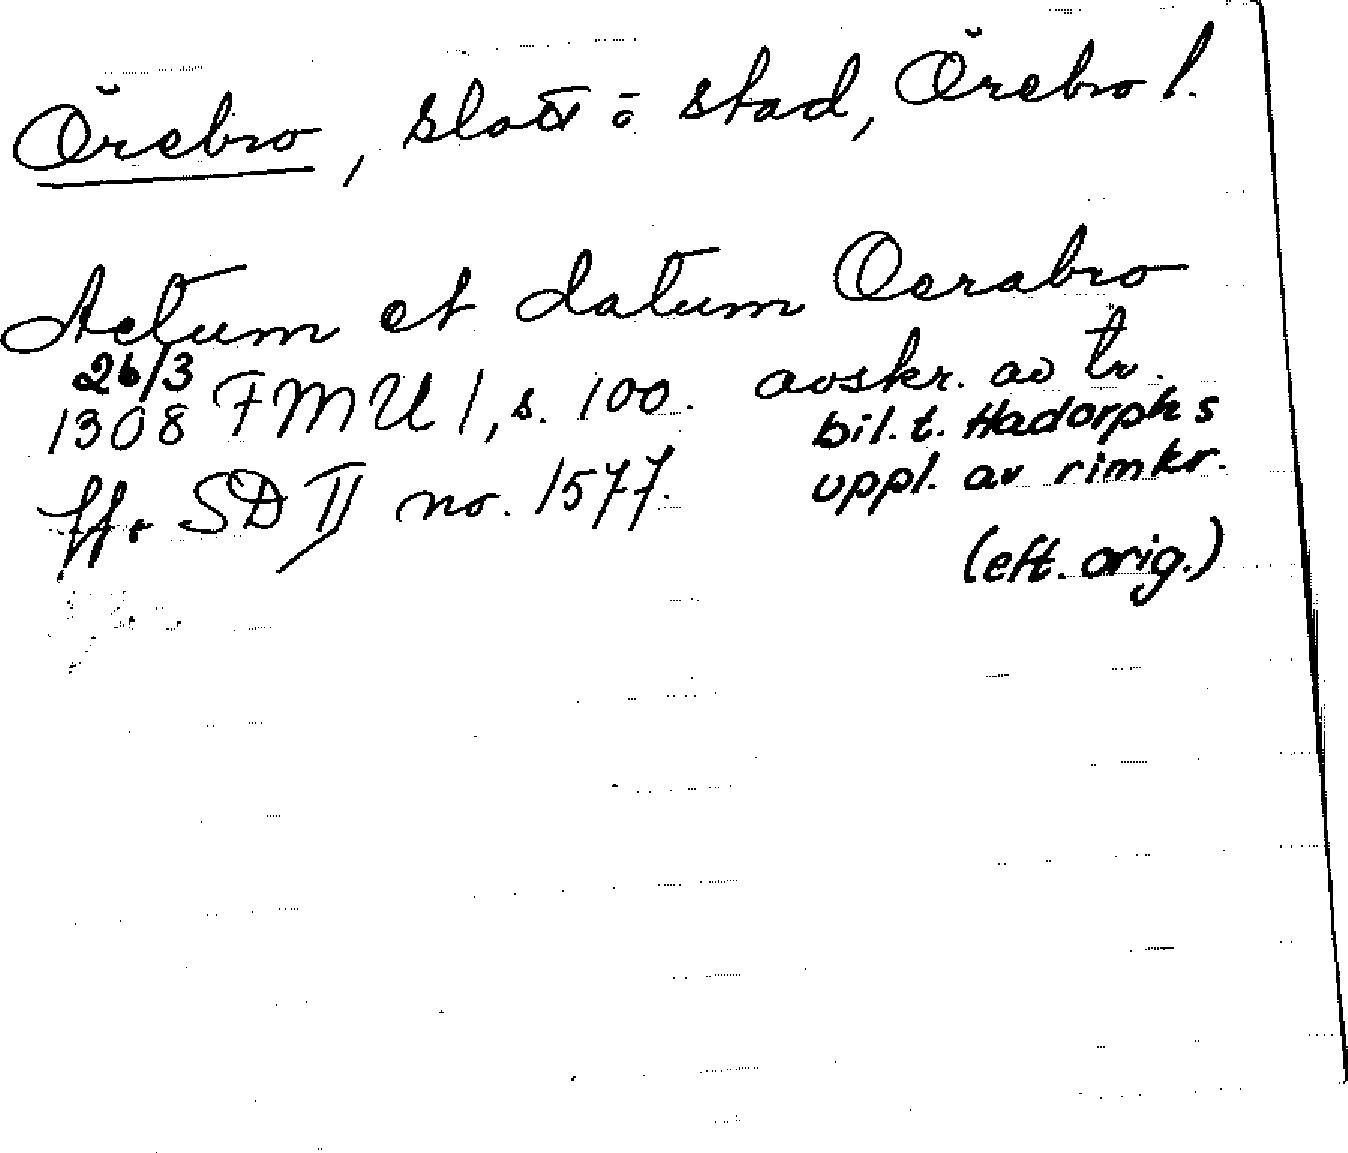 Örebro, slott o stad, Örebro l.
Actum et datum Oerabro
26/3
1308 FMU 1, s. 100. avskr. av tr.
bil. t. Hadorphs
ff. SD II no. 1577. uppl. av rimkr.
(eft. orig.)